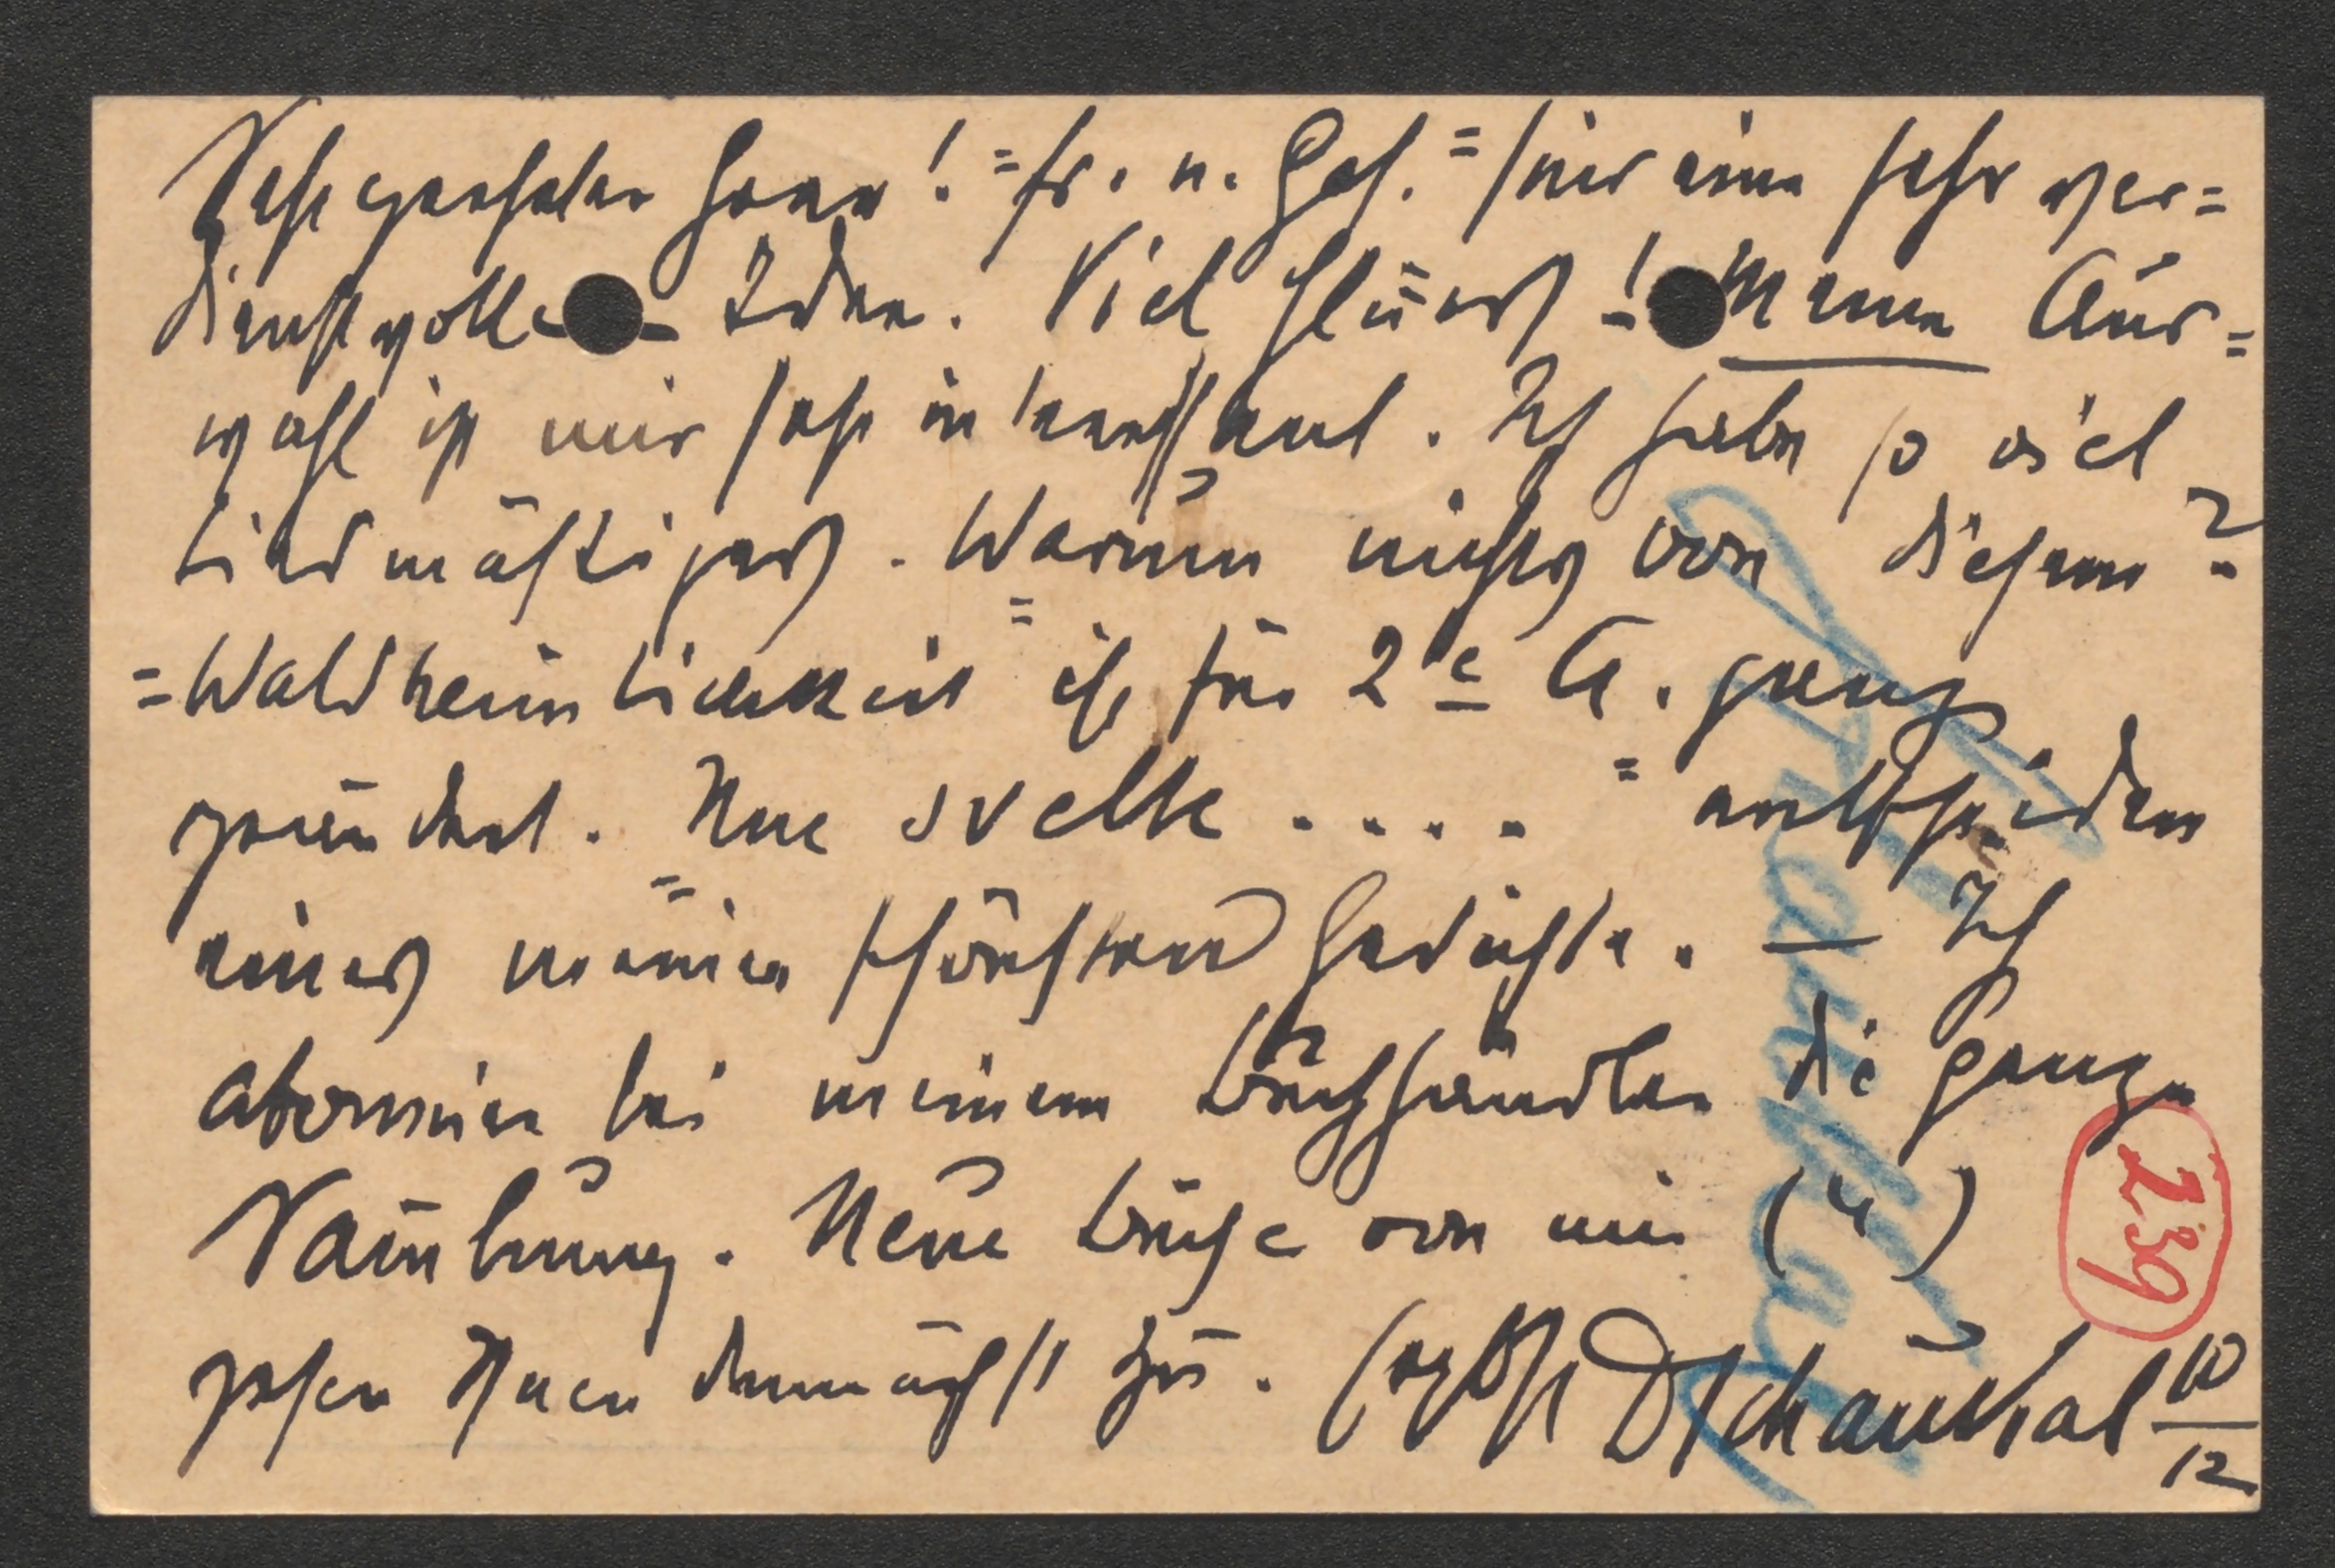 Sehr geehrter Herr! "Fr. u. Ges." sind eine sehr ver=
dienstvolle Idee. Viel Glück! Meine Aus=
wahl ist mir sehr interessant. Ich habe so viel
Liedmäßiges. Warum nichts von diesem?
"Waldheimlichkeit" ist für 2te A. ganz
geändert. "Une svelte . . . ." entschieden
eines meiner schönsten Gedichte. — Ich
abonniere bei meinem Buchhändler die ganze
Sammlung. Neue Bücher von mir (4)
gehen Ihnen demnächst zu. DSchaukal 10/12
Schaukal
239